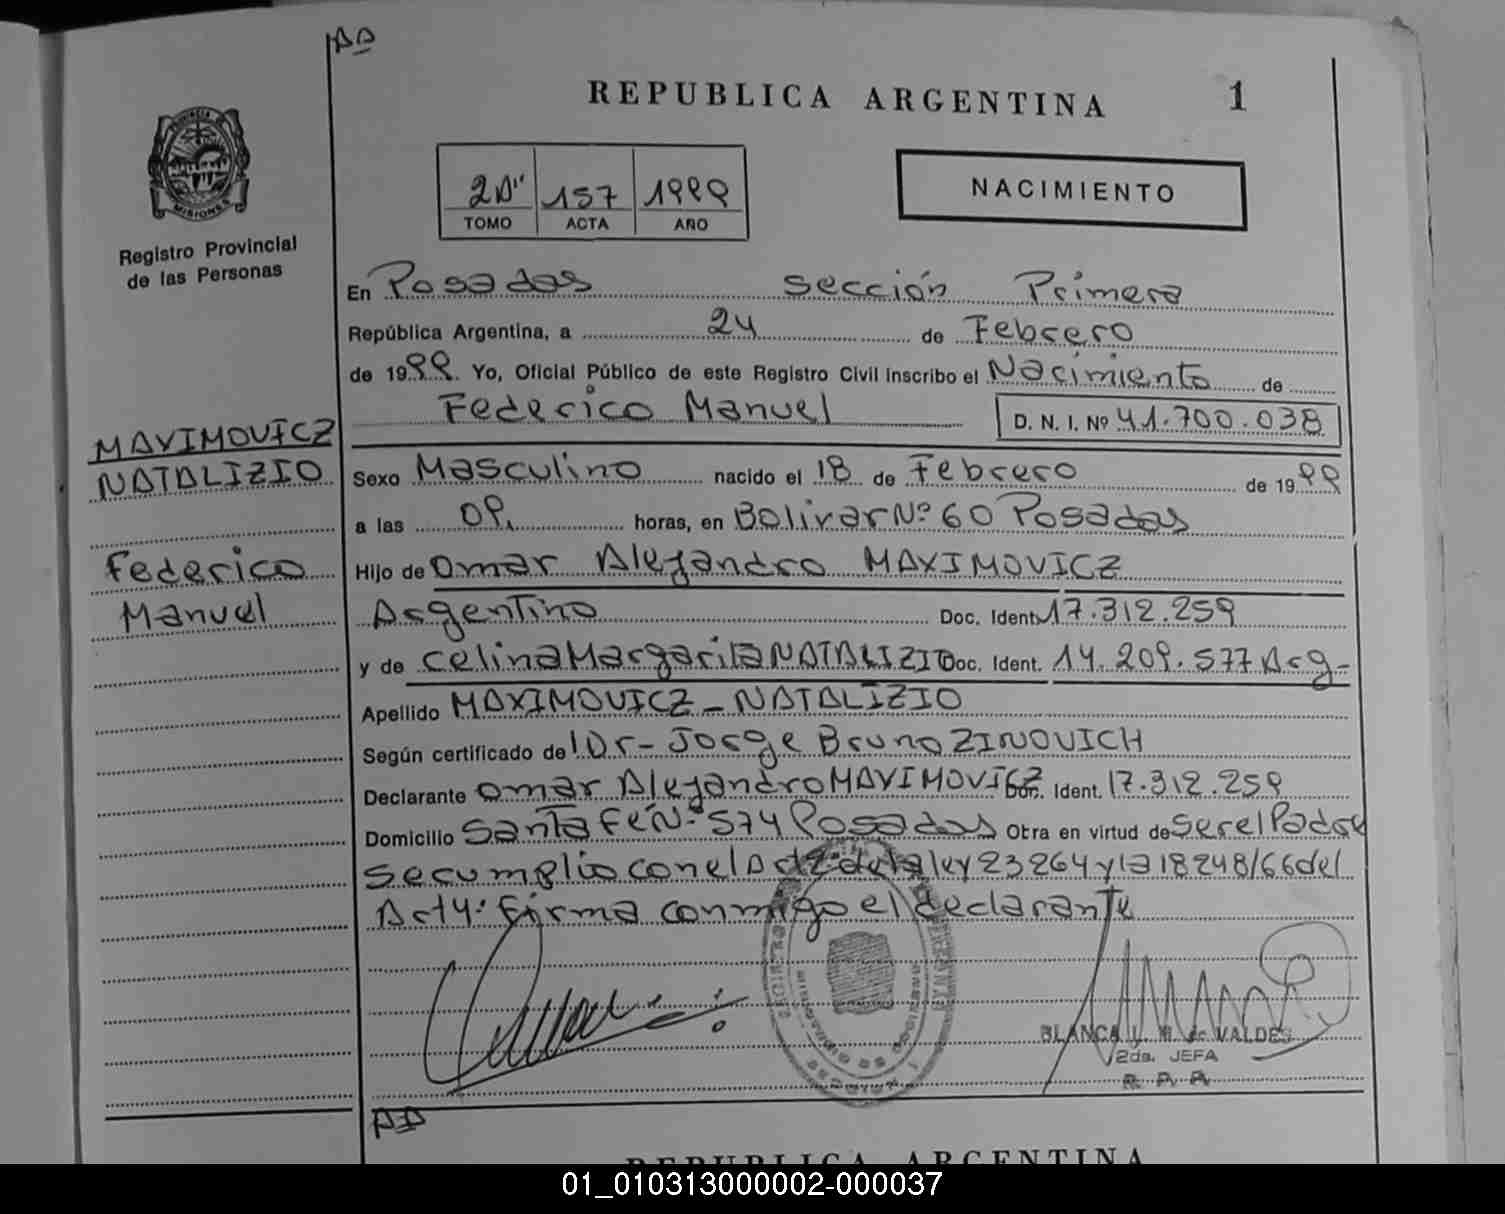 AA
REPUBLICA ARGENTINA 1
PROVINCIA DE
MISIONES
Registro Provincial
de las Personas
2A" 157 1999
TOMO ACTA AÑO
NACIMIENTO
En Posadas sección Primera
República Argentina, a 24 de Febrero
de 1999 Yo, Oficial Público de este Registro Civil inscribo el Nacimiento de
Federico Manuel D. N. I. Nº 41.700.038
MAXIMOVICZ
NATALIZIO
Federico
Manuel
Sexo Masculino nacido el 18 de Febrero de 1999
a las 09, horas, en Bolivar Nº 60 Posadas
Hijo de Omar Alejandro MAXIMOVICZ
Argentino Doc. Ident. 17.312.259
y de Celina Margarita NATALIZIO Doc. Ident. 14.209.577 Arg-
Apellido MAXIMOVICZ - NATALIZIO
Según certificado del Dr- Jorge Bruno ZINOVICH
Declarante Omar Alejandro MAXIMOVICZ Doc. Ident. 17.312.259
Domicilio Santa Fé Nº 574 Posadas Obra en virtud de ser el Padre
se cumplio con el Art 2: de la ley 23264 y la 18248/66 del
Art 4: firma conmigo el declarante
BLANCA de VALDES
2da. JEFA
R. P. P.
AA
REPUBLICA ARGENTINA
01_010313000002-000037